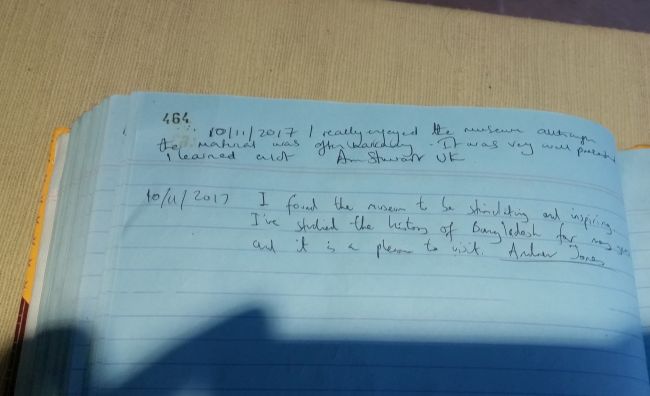 464
10/11/2017 I really enjoyed the museum although
the material was often harrowing. It was very well presented
I learned a lot Ann Stewart UK
10/11/2017 I found the museum to be stimulating and inspiring.
I've studied the history of Bangladesh for many years
and it is a pleasure to visit. Andrew Jones